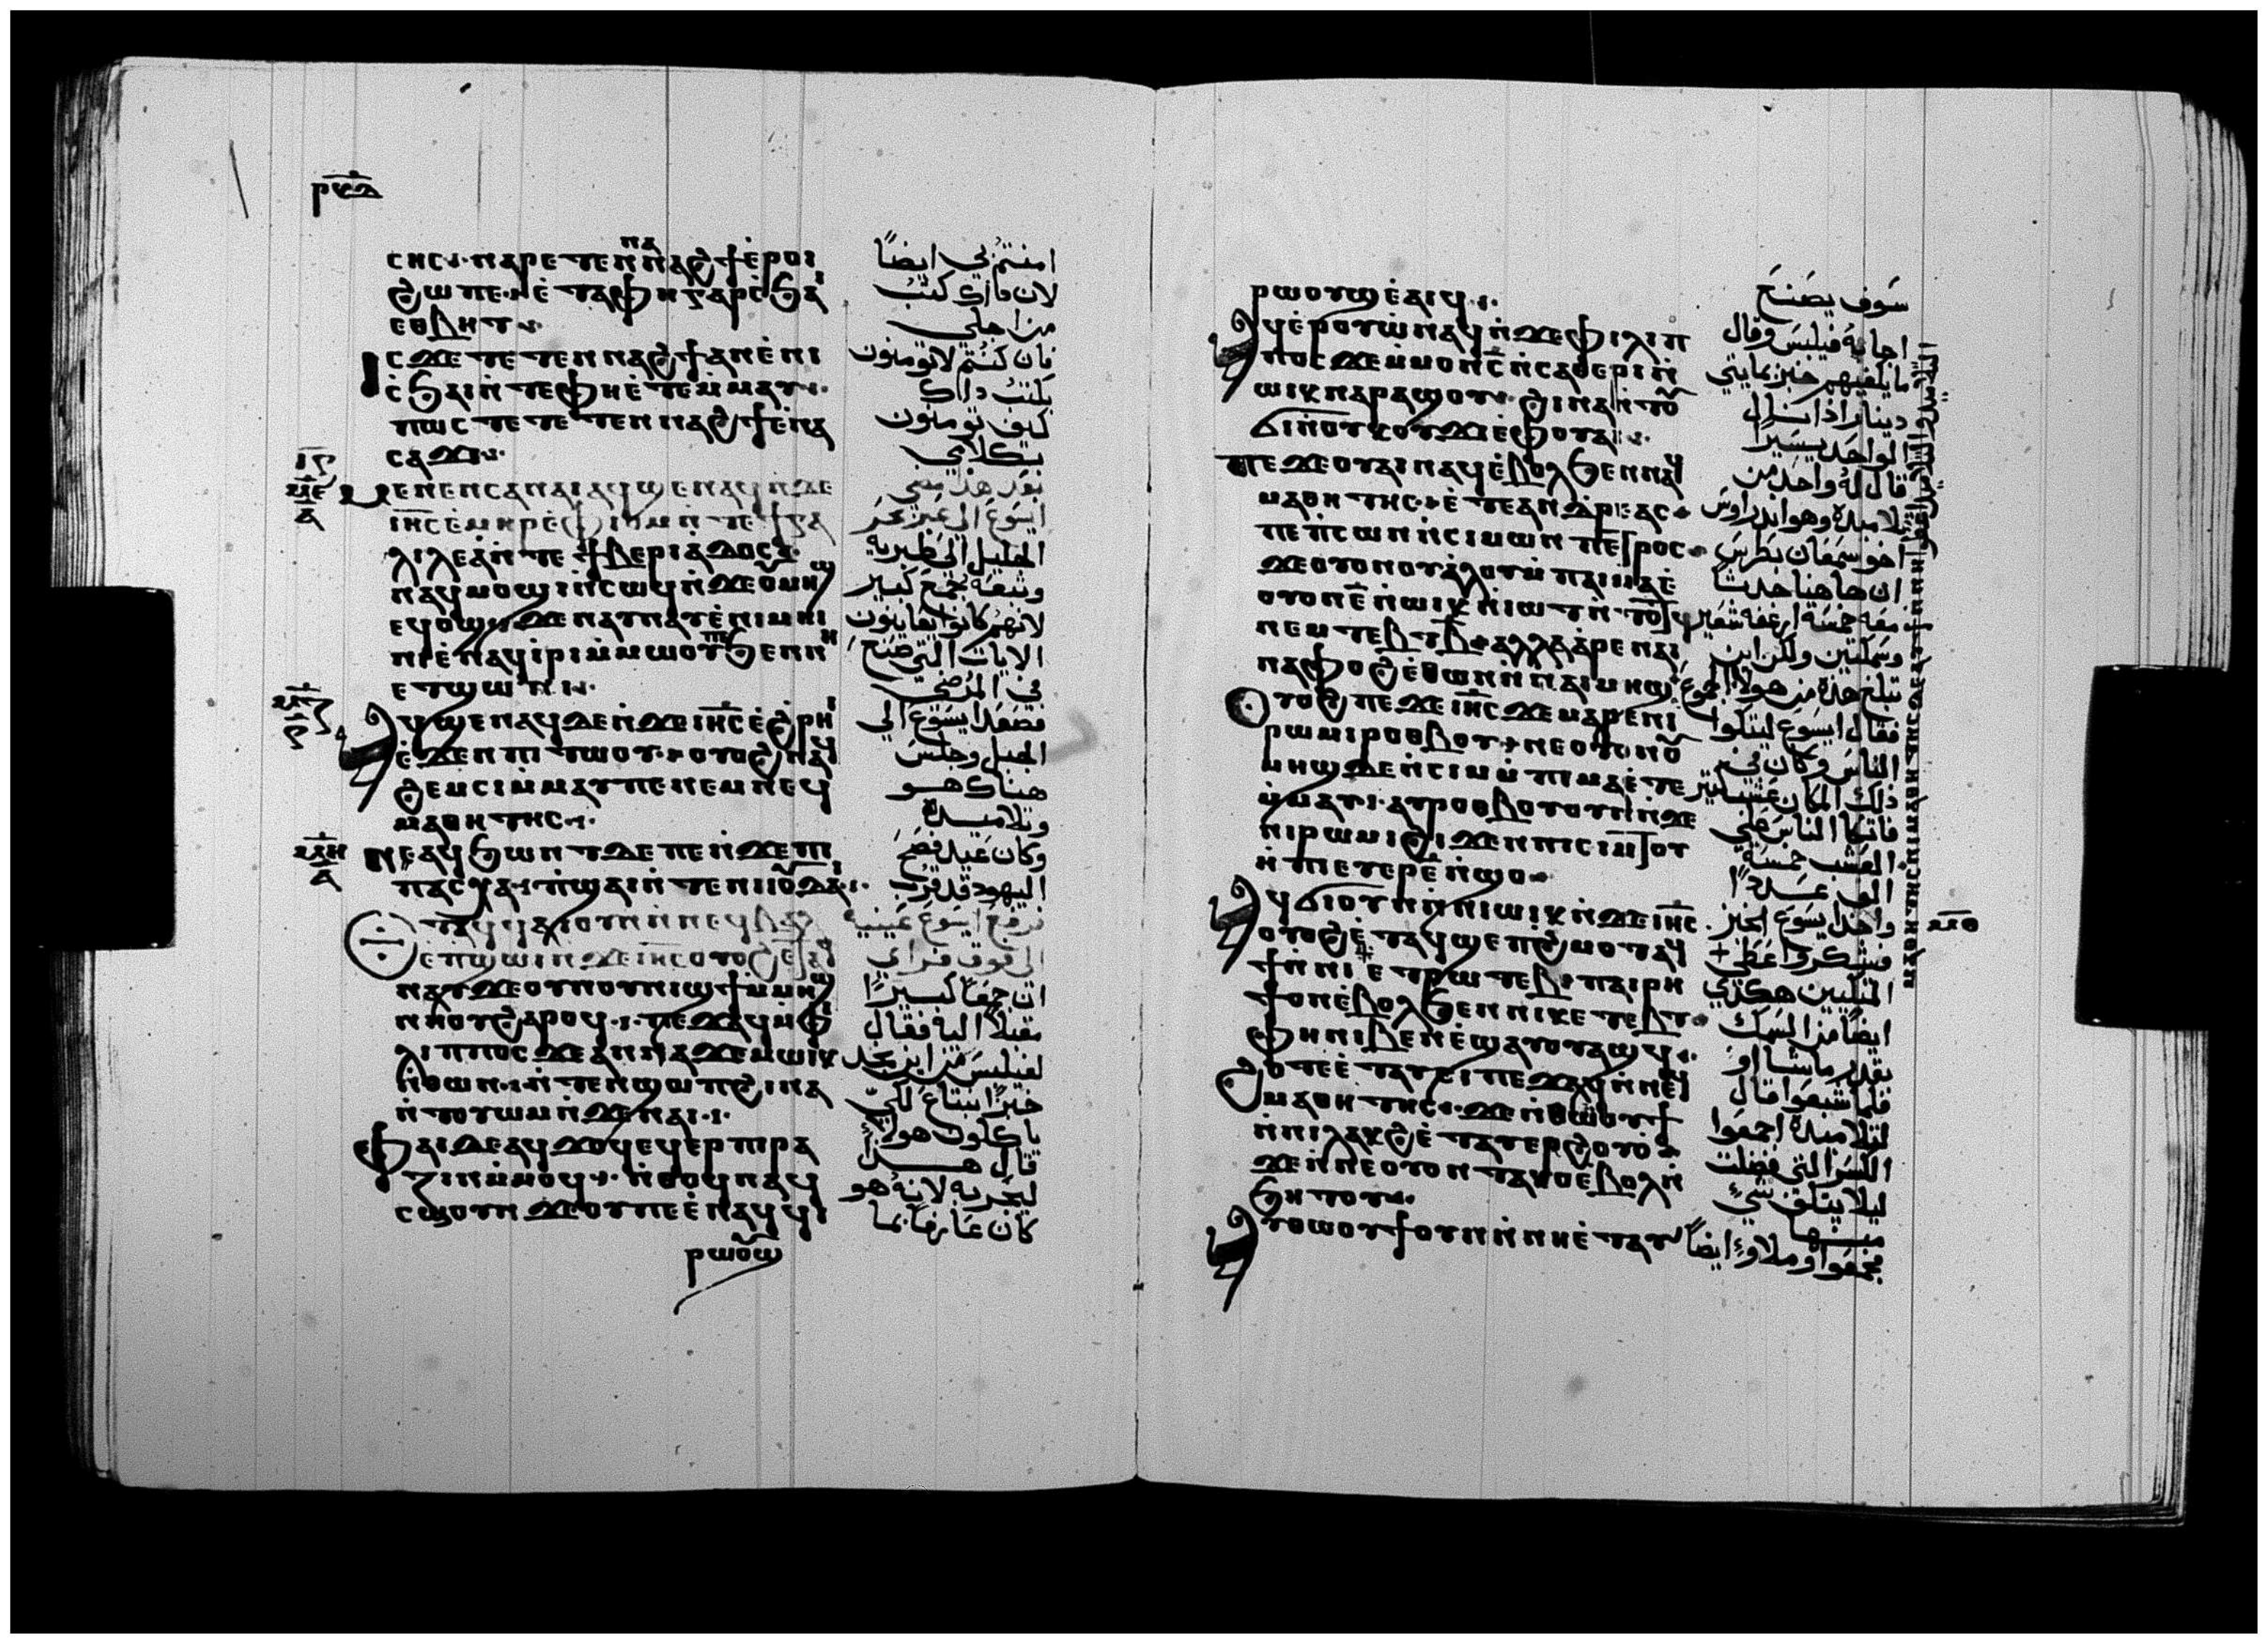 ⲣⲕⲇ
ⲥⲏⲥ· ⲛⲁⲣⲉⲧⲉⲛⲛⲁⲛⲁϩϯⲉ̀ⲣⲟⲓ
ϩⲱⲡⲉ· ⲉ̀ⲧⲁⲫⲏⲅⲁⲣⲥ̀ϧⲁⲓ
ⲉⲑⲃⲏⲧ·
ⲓⲥϫⲉⲧⲉⲧⲉⲛⲛⲁϩϯⲁⲛⲉ̀ⲛⲓ
ⲥ̀ϧⲁⲓⲛ̀ⲧⲉⲫⲏⲉ̀ⲧⲉⲙ̀ⲙⲁⲩ·
ⲡⲱⲥⲧⲉⲧⲉⲧⲉⲛⲛⲁϩϯⲉ̀ⲛⲁ
ⲥⲁϫⲓ·
ⲙⲉⲛⲉⲛⲥⲁⲛⲁⲓⲁϥϣⲉⲛⲁϥⲛ̀ϫⲉ
ⲓⲏⲥⲉ̀ⲙⲏⲣⲉ̀ⲫⲓⲟⲙⲛ̀ⲧⲉϯⲅⲁ
ⲗⲓⲗⲉⲁ̀ⲛ̀ⲧⲉϯⲃⲉⲣⲓⲁⲇⲟⲥ·
ⲛⲁϥⲙⲟϣⲓⲛ̀ⲥⲱϥⲛ̀ϫⲉⲟⲩⲙⲏϣ
ⲉϥⲟϣϫⲉⲛⲁⲩⲛⲁⲩⲉ̀ⲛⲓⲙⲏⲓ
ⲛⲓⲉ̀ⲛⲁϥⲓ̀ⲣⲓⲙ̀ⲙⲱⲟⲩⲡⲉϧⲉⲛⲛⲏ
ⲉⲧϣⲱⲛⲓ·
ⲁϥϣⲉⲛⲁϥⲇⲉⲛ̀ϫⲉⲓⲏⲥⲉ̀ϩⲣⲏⲓ
ⲉ̀ϫⲉⲛⲡⲓⲧⲱⲟⲩ·ⲟⲩⲟϩⲛⲁϥ
ϩⲉⲙⲥⲓⲙ̀ⲙⲁⲩⲡⲉⲛⲉⲙⲛⲉϥ
ⲙⲁⲑⲏⲧⲏⲥ·
ⲛⲉⲁϥϧⲱⲛⲧⲇⲉⲡⲉⲛ̀ϫⲉⲡⲓ
ⲡⲁⲥⲭⲁ·ⲡ̀ϣⲁⲓⲛ̀ⲧⲉⲛⲓⲓⲟⲩⲇⲁⲓ·
ⲉ̀ⲧⲁϥϥⲁⲓⲟⲩⲛⲛ̀ⲛⲉϥⲃⲁⲗ
ⲉ̀ⲡϣⲱⲓⲛ̀ϫⲉⲓⲏⲥⲟⲩⲟϩⲉ̀ⲧⲁϥ
ⲛⲁⲩϫⲉⲟⲩⲛⲟⲩⲛⲓϣϯⲙ̀ⲙⲏϣ
ⲛⲏⲟⲩϩⲁⲣⲟϥ·ⲡⲉϫⲁϥⲙ̀ⲫⲓ
ⲗⲓⲡⲡⲟⲥϫⲉⲁⲛⲛⲁϫⲉⲙⲱⲓⲕ
ⲛ̀ⲑⲱⲛ·ⲛ̀ⲧⲉⲛϣⲱⲡϩⲓⲛⲁ
ⲛ̀ⲧⲟⲩⲟⲩⲱⲙⲛ̀ϫⲉⲛⲁⲓ·
ⲫⲁⲓⲇⲉⲁϥϫⲟϥⲉϥⲉⲣⲡⲓⲣⲁ
ⲍⲓⲛⲙ̀ⲙⲟϥ·ⲛ̀ⲑⲟϥⲛⲁϥ
ⲥⲱⲟⲩⲛϫⲉⲟⲩⲡⲉⲉ̀ⲛⲁϥϥⲓ
ⲣⲱⲟⲩϣ
امنتم بي ايضًا
لان ذاك كتب
من اجلي
فان كنتم لا تومنون
بكتب ذاك
كيف تومنون
بكلامي
بعد هذا مضي
ايسوع الى عبر بحر
الجليل الى طبرية
وتبعه جمع كبير
لانهم كانوا يعاينون
الايات التي صنع
في المرضى
فصعد ايسوع الى
الجبل وجلس
هناك هو
وتلاميذه
وكان عيد فصح
اليهود قد قرب
فرفع ايسوع عينيه
الى فوق فراي
ان جمعًا كبيرًا
مقبلًا اليه فقال
لفيلبس من اين نجد
خبزًا نبتاع لكي
ياكلون هولاي
قال هذا
ليجربه لانه هو
كان عارفًا بما
ⲣⲱⲟⲩϣⲉ̀ⲁⲓϥ·
ⲁϥⲉ̀ⲣⲟⲩⲱ̀ⲛⲁϥⲛ̀ϫⲉⲫⲓⲗⲓⲡ
ⲡⲟⲥϫⲉⲙ̀ⲙⲟⲛⲥ̅ⲛ̀ⲥⲁⲑⲉⲣⲓⲛ̀
ⲱⲓⲕⲛⲁⲣⲁϣⲟⲩ·ϩⲓⲛⲁⲛ̀ⲧⲟⲩ
ϭⲓⲛ̀ⲟⲩⲕⲟⲩϫⲓⲉ̀ⲫⲟⲩⲁⲓ·
ⲡⲉϫⲉⲟⲩⲁⲓⲛⲁϥⲉ̀ⲃⲟⲗϧⲉⲛⲛⲉϥ
ⲙⲁⲑⲏⲧⲏⲥ·ⲉ̀ⲧⲉⲁⲛⲇⲣⲉⲁⲥ
ⲡⲉⲡ̀ⲥⲟⲛⲛ̀ⲥⲓⲙⲱⲛⲡⲉⲧⲣⲟⲥ
ϫⲉⲟⲩⲟⲛⲟⲩⲁ̀ⲗⲟⲩⲙ̀ⲡⲁⲓⲙⲁⲉ̀
ⲟⲩⲟⲛⲉ̅ⲛ̀ⲱⲓⲕⲛ̀ⲓⲱⲧⲛ̀ⲧⲟⲧϥ
ⲛⲉⲙⲧⲉⲃⲧⲃ̅ⲁⲗⲗⲁⲁ̀ⲣⲉⲛⲁⲓ
ⲛⲁⲫⲟϩⲉ̀ⲑⲱⲛⲛ̀ⲛⲁⲓⲙⲏϣ
ⲟⲩⲟϩⲡⲉϫⲉⲓⲏⲥϫⲉⲙⲁⲣⲉⲛⲓ
ⲣⲱⲙⲓⲣⲟⲑⲃⲟⲩ·ⲛⲉⲟⲩⲟⲛⲟⲩ
ⲙⲏϣⲇⲉⲛ̀ⲥⲓⲙⲙ̀ⲡⲓⲙⲁⲉ̀ⲧⲉ
ⲙ̀ⲙⲁⲩ·ⲁⲩⲣⲟⲑⲃⲟⲩⲟⲩⲛⲛ̀ϫⲉ
ⲛⲓⲣⲱⲙⲓϩⲓϫⲉⲛⲡⲓⲥⲓⲙⲟⲩ
ⲛ̀ⲡⲉⲧⲉⲣⲉ̅ⲛ̀ϣⲟ
ⲁϥϭⲓⲟⲩⲛⲛ̀ⲛⲓⲱⲓⲕⲛ̀ϫⲉⲓⲏⲥ
ⲟⲩⲟϩⲉ̀ⲧⲁϥϣⲉⲡϩ̀ⲙⲟⲧⲁϥ
ϯⲛ̀ⲛⲓⲉ̀ⲧⲣⲱⲧⲉⲃ·ⲡⲁⲓⲣⲏ
ϯⲟⲛⲉ̀ⲃⲟⲗϧⲉⲛⲛⲓⲕⲉⲧⲉⲃⲧ
ⲫⲏⲛⲓⲃⲉⲛⲉ̀ϣⲁⲩⲟⲩⲁϣϥ·
ϩⲟⲧⲉⲉ̀ⲧⲁⲩⲥⲓⲡⲉϫⲁϥⲛ̀ⲛⲉϥ
ⲙⲁⲑⲏⲧⲏⲥ·ϫⲉⲑⲱⲟⲩϯ
ⲛ̀ⲛⲓⲗⲁⲕϩⲉ̀ⲧⲁⲩⲉⲣϩⲟⲩⲟ̀
ϫⲉⲛ̀ⲛⲉⲟⲩⲟⲛⲧⲁⲕⲟⲉ̀ⲃⲟⲗⲛ̀
ϧⲏⲧⲟⲩ·
ⲁⲩⲑⲱⲟⲩϯⲟⲩⲛⲛ̀ⲛⲏⲉ̀ⲧⲁⲩ
سوف يصنع
اجابه فيلبس وقال
ما يكفيهم خبز بمايتي
دينار اذا نال
الواحد يسيرًا
قال له واحد من
تلاميذه وهو اندراوس
اخو سمعان بطرس
ان هاهنا حدثًا
معه خمسة ارغفة شعير
وسمكتين ولكن اين
تبلغ هذه من هولا الجموع
فقال ايسوع ليتكوا
الناس وكان في
ذلك المكان عشب كثير
فاتكا الناس على
العشب خمسة
الف عددًا
واخذ ايسوع الخبز
فشكر واعطى
المتكيين هكذي
ايضًا من السمك
بقدر ما شااوا
فلما شبعوا قال
لتلاميذه اجمعوا
الكسر التي فضلت
ليلا يتلف شيء
منها
فجمعوا وملاوا ايضًا
ⲥⲙⲑ